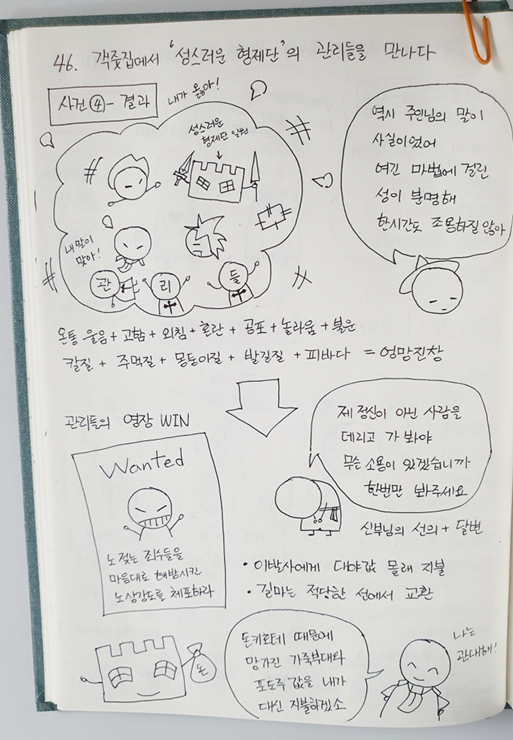 46. 객줏집에서 '성스러운 형제단'의 관리들을 만나다
사건④- 결과
내가 옳아!
성스러운
형제단 일원
내 말이
맞아!
관
리
들
역시 주인님의 말이
사실이었어
여긴 마법에 걸린
성이 분명해
한시간도 조용하질 않아
온통 울음 + 고함 + 외침 + 혼란 + 공포 + 놀라움 + 불운
칼질 + 주먹질 + 몽둥이질 + 발길질 + 피바다 = 엉망진창
관리들의 영장 WIN
Wanted
노 젓는 죄수들을
마음대로 해방시킨
노상강도를 체포하라
제 정신이 아닌 사람을
데리고 가 봐야
무슨 소용이 있겠습니까
한번만 봐주세요
신부님의 선의 + 달변
• 이발사에게 대야값 몰래 지불
• 길마는 적당한 선에서 교환
돈
돈키호테 때문에
망가진 가죽부대와
포도주 값을 내가
대신 지불하겠소
나는
관대해!